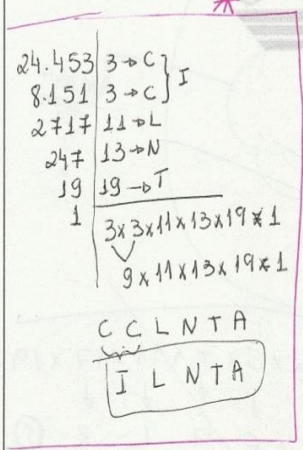 24.453 | 3 → C } I
8.151 | 3 → C
2717 | 11 → L
247 | 13 → N
19 | 19 → T
1 | 3x3x11x13x19x1
9x11x13x19x1
C C L N T A
I L N T A